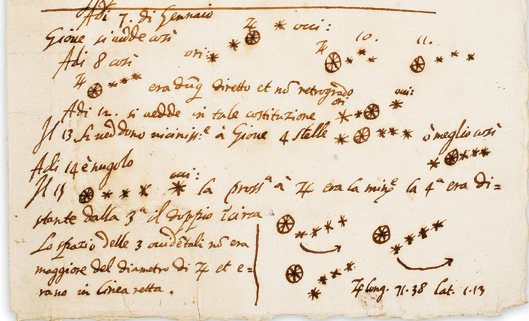 Adì 7. di Gennaio
Gione si uedde così ori: ♃ occi: 10. 11.
Adi 8 così
♃ era dūq diretto et nō retrogrado
Adi 12. si uedde in tale costituzione ori occi:
Il 13 si ueddono vicinissᵉ à Gione 4 stelle ò meglio così
Adi 14 è nugolo
Il 15 occi: la prossᵃ à ♃ era la minᵉ la 4ᵃ era di=
stante dalla 3ᵃ il doppio icirca
Lo spazio delle 3 occidētali nō era
maggiore del diametro di ♃ et e=
rano in linea retta.
♃ long. 71.38 lat. 1.13